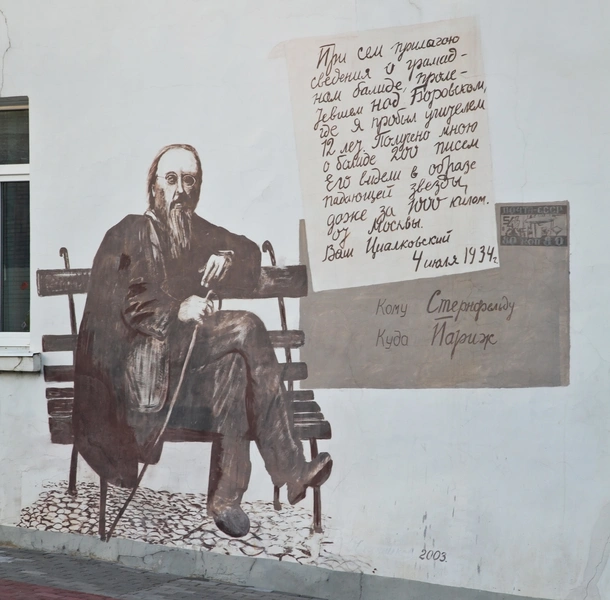 При сем прилагаю
сведения о громад-
ном балиде, проле-
тевшем над Боровском,
где я пробыл учителем
12 лет. Получено мною
о балиде 200 писем
Его видели в образе
падающей звезды,
даже за 1000 килом.
от Москвы.
Ваш Циалковский
4 июля 1934г.
Кому Стернфельду
Куда Париж
2003.